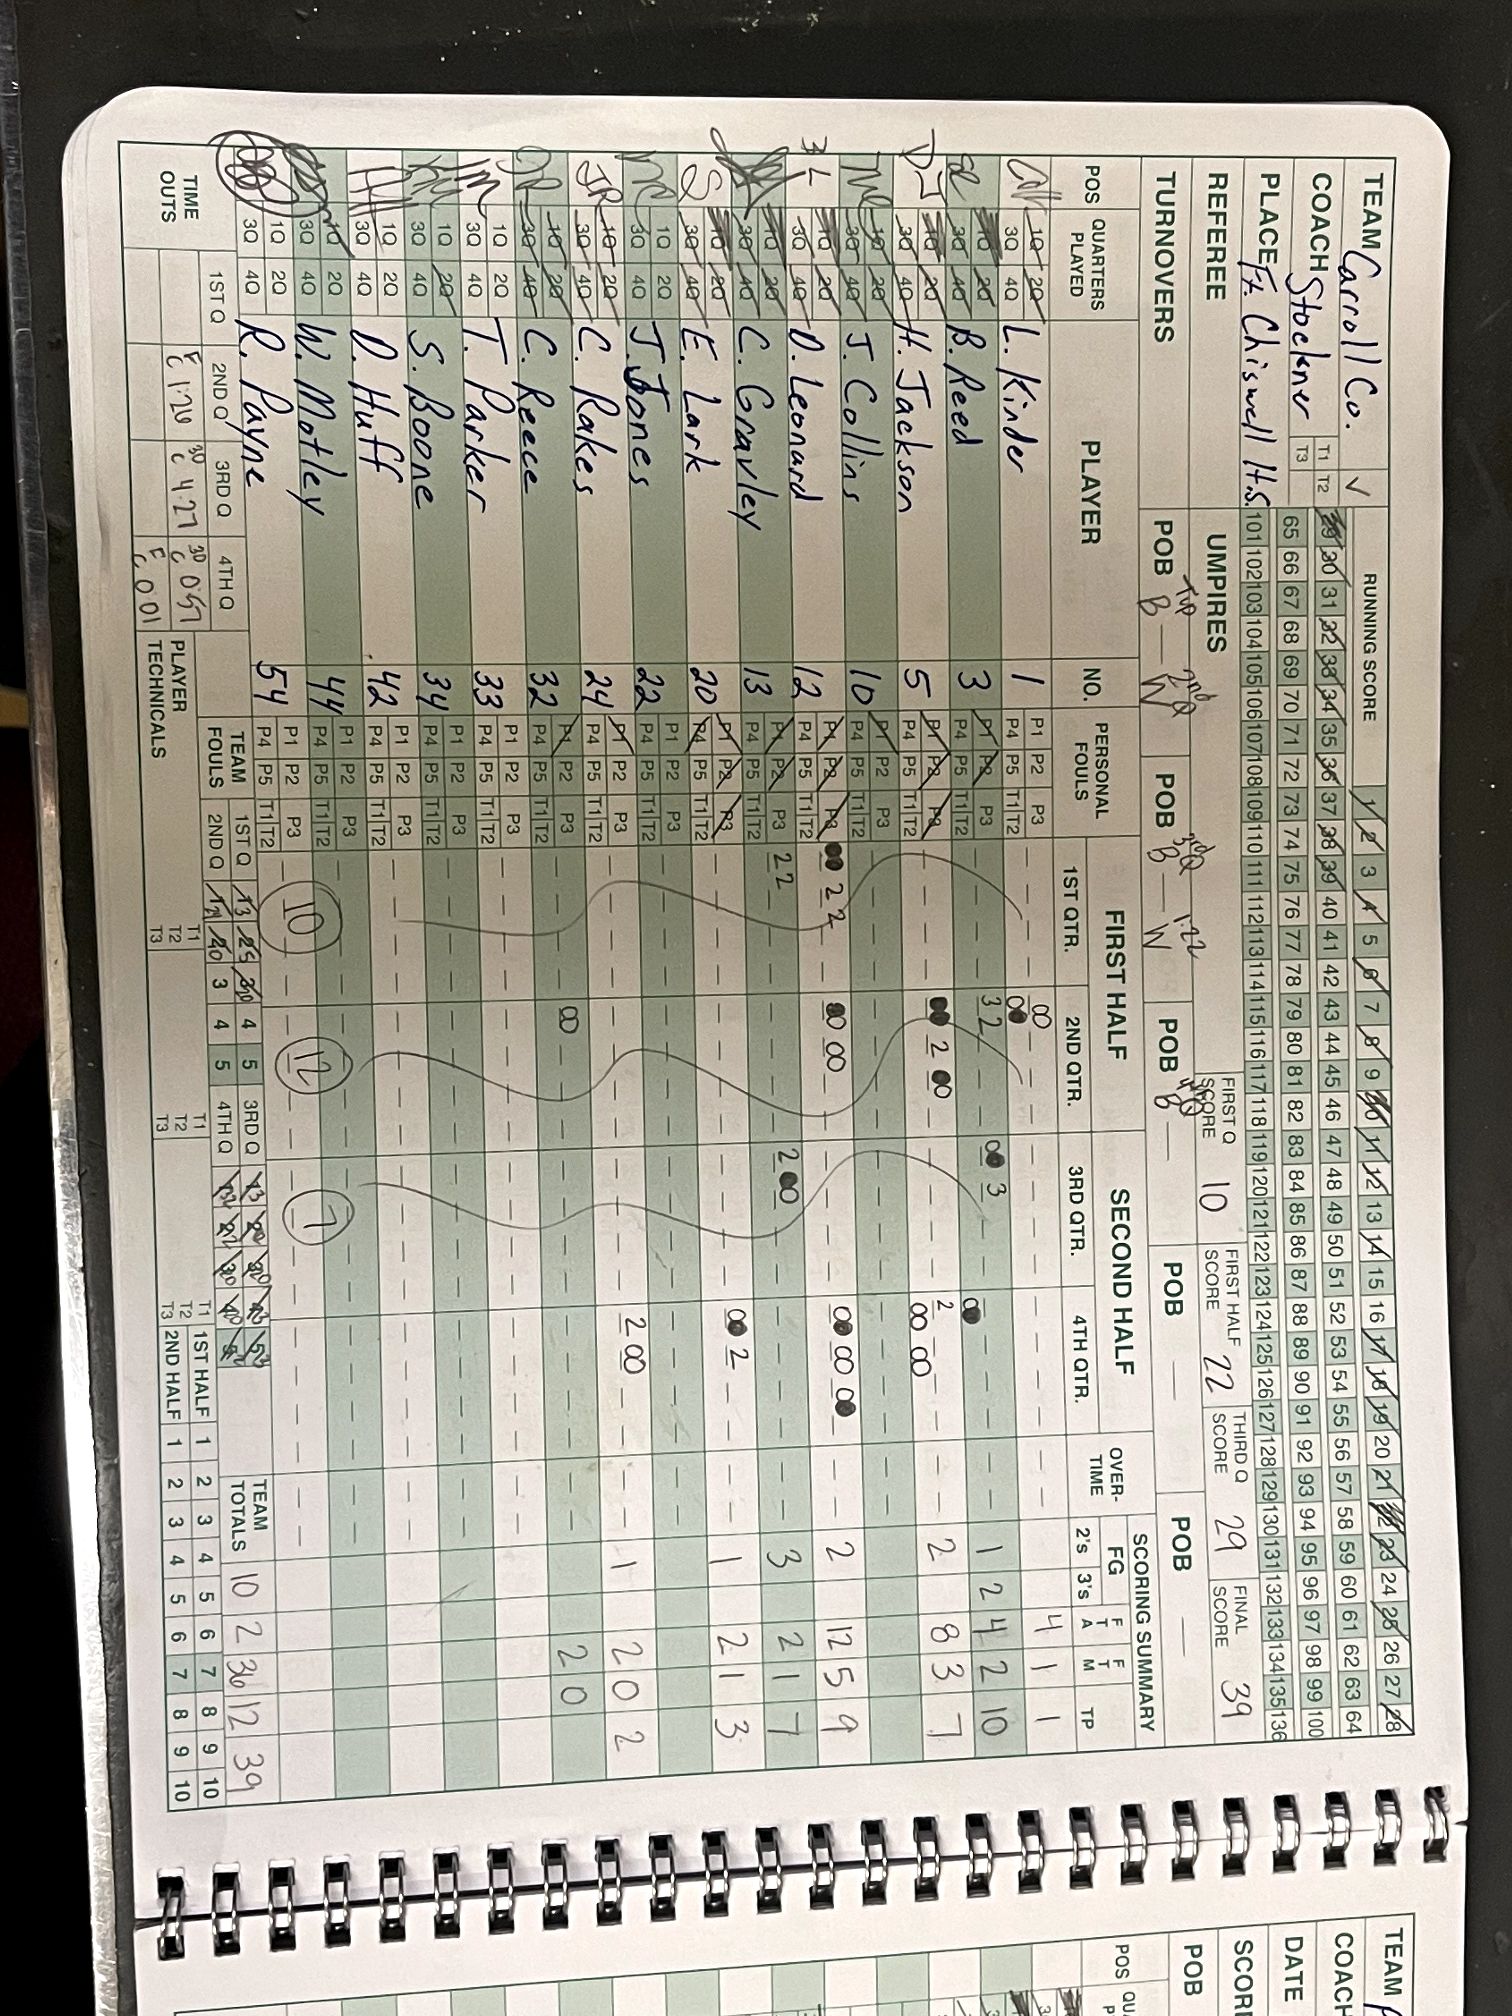 TEAM Carroll Co. ✓ RUNNING SCORE 1 2 3 4 5 6 7 8 9 10 11 12 13 14 15 16 17 18 19 20 21 22 23 24 25 26 27 28
COACH Stockner T1 T2 29 30 31 32 33 34 35 36 37 38 39 40 41 42 43 44 45 46 47 48 49 50 51 52 53 54 55 56 57 58 59 60 61 62 63 64
T3 65 66 67 68 69 70 71 72 73 74 75 76 77 78 79 80 81 82 83 84 85 86 87 88 89 90 91 92 93 94 95 96 97 98 99 100
PLACE Ft. Chiswell H.S. 101 102 103 104 105 106 107 108 109 110 111 112 113 114 115 116 117 118 119 120 121 122 123 124 125 126 127 128 129 130 131 132 133 134 135 136
REFEREE UMPIRES FIRST Q SCORE 10 FIRST HALF SCORE 22 THIRD Q SCORE 29 FINAL SCORE 39
TURNOVERS POB B W POB B W POB B POB POB
POS QUARTERS PLAYED PLAYER NO. PERSONAL FOULS FIRST HALF SECOND HALF OVER-TIME SCORING SUMMARY
1ST QTR. 2ND QTR. 3RD QTR. 4TH QTR. FG 2's 3's FTA FTM TP
1Q 2Q 3Q 4Q L. Kinder 1 P1 P2 P3 P4 P5 T1 T2 4 1 1
1Q 2Q 3Q 4Q B. Reed 3 P1 P2 P3 P4 P5 T1 T2 3 2 3 1 2 4 2 10
DJ 1Q 2Q 3Q 4Q H. Jackson 5 P1 P2 P3 P4 P5 T1 T2 2 2 2 8 3 7
1Q 2Q 3Q 4Q J. Collins 10 P1 P2 P3 P4 P5 T1 T2
1Q 2Q 3Q 4Q D. Leonard 12 P1 P2 P3 P4 P5 T1 T2 2 2 2 12 5 9
1Q 2Q 3Q 4Q C. Gravley 13 P1 P2 P3 P4 P5 T1 T2 2 2 2 3 2 1 7
S 1Q 2Q 3Q 4Q E. Lark 20 P1 P2 P3 P4 P5 T1 T2 2 1 2 1 3
1Q 2Q 3Q 4Q J. Jones 22 P1 P2 P3 P4 P5 T1 T2
JR 1Q 2Q 3Q 4Q C. Rakes 24 P1 P2 P3 P4 P5 T1 T2 2 1 2 0 2
1Q 2Q 3Q 4Q C. Reece 32 P1 P2 P3 P4 P5 T1 T2 2 0
1Q 2Q 3Q 4Q T. Parker 33 P1 P2 P3 P4 P5 T1 T2
1Q 2Q 3Q 4Q S. Boone 34 P1 P2 P3 P4 P5 T1 T2
1Q 2Q 3Q 4Q D. Huff 42 P1 P2 P3 P4 P5 T1 T2
1Q 2Q 3Q 4Q W. Motley 44 P1 P2 P3 P4 P5 T1 T2
1Q 2Q 3Q 4Q R. Payne 54 P1 P2 P3 P4 P5 T1 T2 10 12 7
TIME OUTS 1ST Q 2ND Q 3RD Q 4TH Q TEAM FOULS 1ST Q 4 5 3RD Q TEAM TOTALS 10 2 36 12 39
F C 1:20 30 C 4:27 30 C 0:57 2ND Q 3 4 5 4TH Q
F C 0:01 PLAYER TECHNICALS T1 T2 T3 T1 T2 T3 T1 T2 T3 1ST HALF 1 2 3 4 5 6 7 8 9 10
2ND HALF 1 2 3 4 5 6 7 8 9 10
TEAM
COACH
DATE
SCOR
POB
POS QU